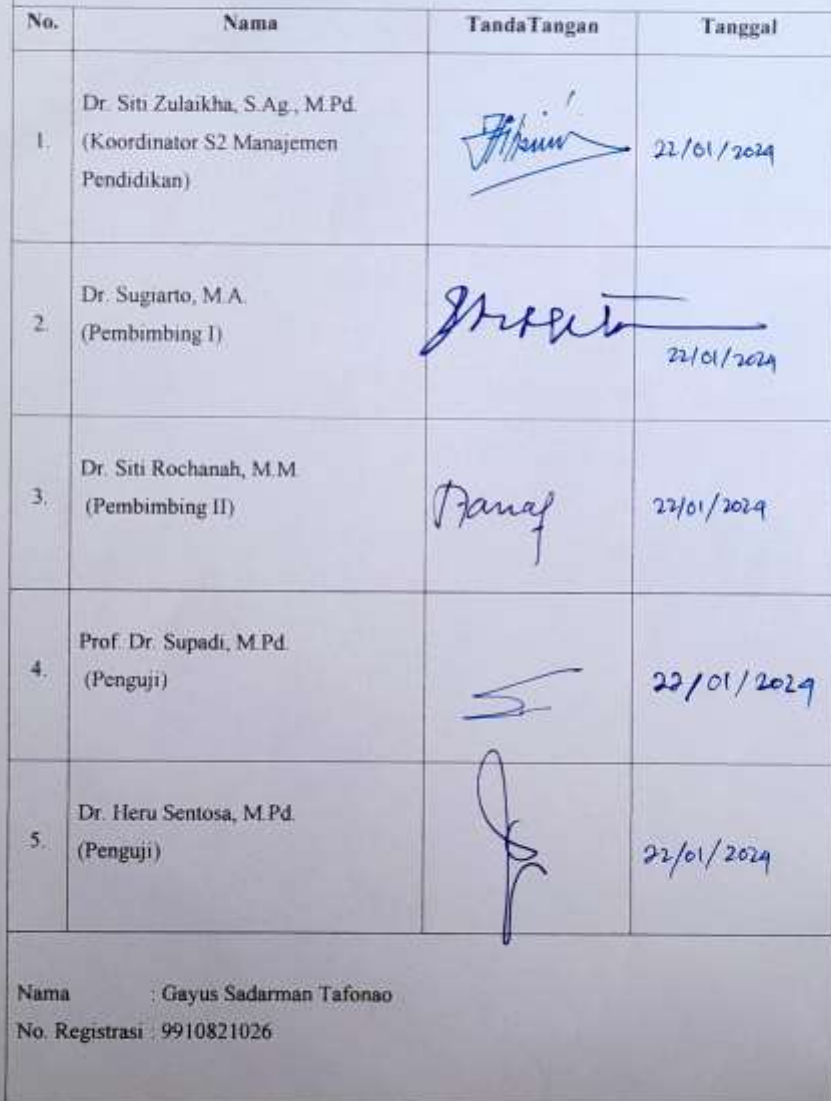 No. Nama TandaTangan Tanggal
Dr. Siti Zulaikha, S.Ag., M.Pd.
1. (Koordinator S2 Manajemen 22/01/2024
Pendidikan)
Dr. Sugiarto, M.A.
2. (Pembimbing I)
22/01/2024
Dr. Siti Rochanah, M.M.
3. (Pembimbing II) 22/01/2024
Prof. Dr. Supadi, M.Pd.
4. (Penguji) 22/01/2024
Dr. Heru Sentosa, M.Pd.
5. (Penguji) 22/01/2024
Nama : Gayus Sadarman Tafonao
No. Registrasi : 9910821026